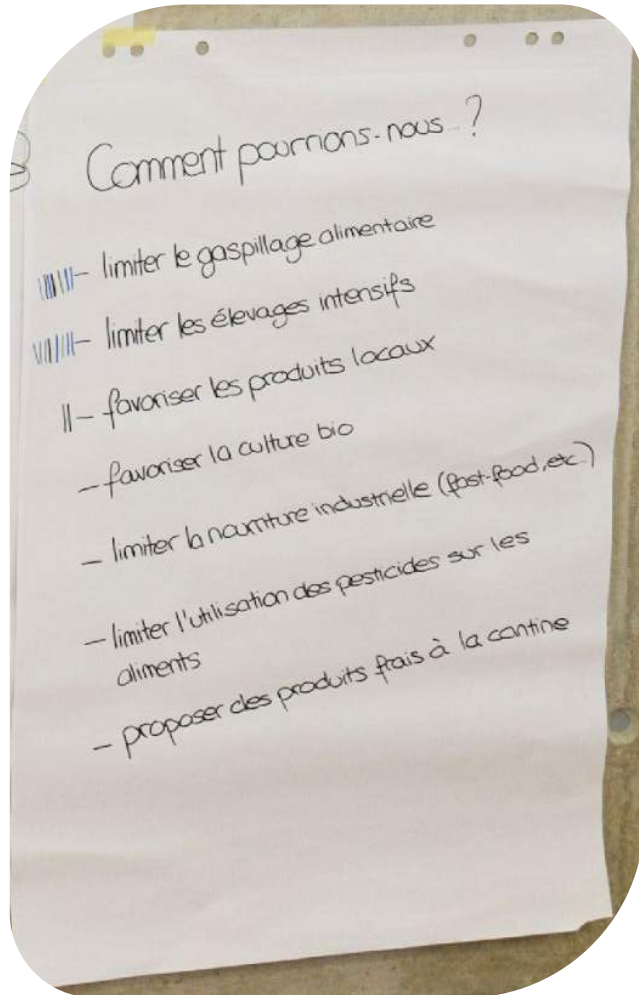 Comment pourrions-nous...?
- limiter le gaspillage alimentaire
- limiter les élevages intensifs
- favoriser les produits locaux
- favoriser la culture bio
- limiter la nourriture industrielle (fast-food, etc.)
- limiter l'utilisation des pesticides sur les
aliments
- proposer des produits frais à la cantine